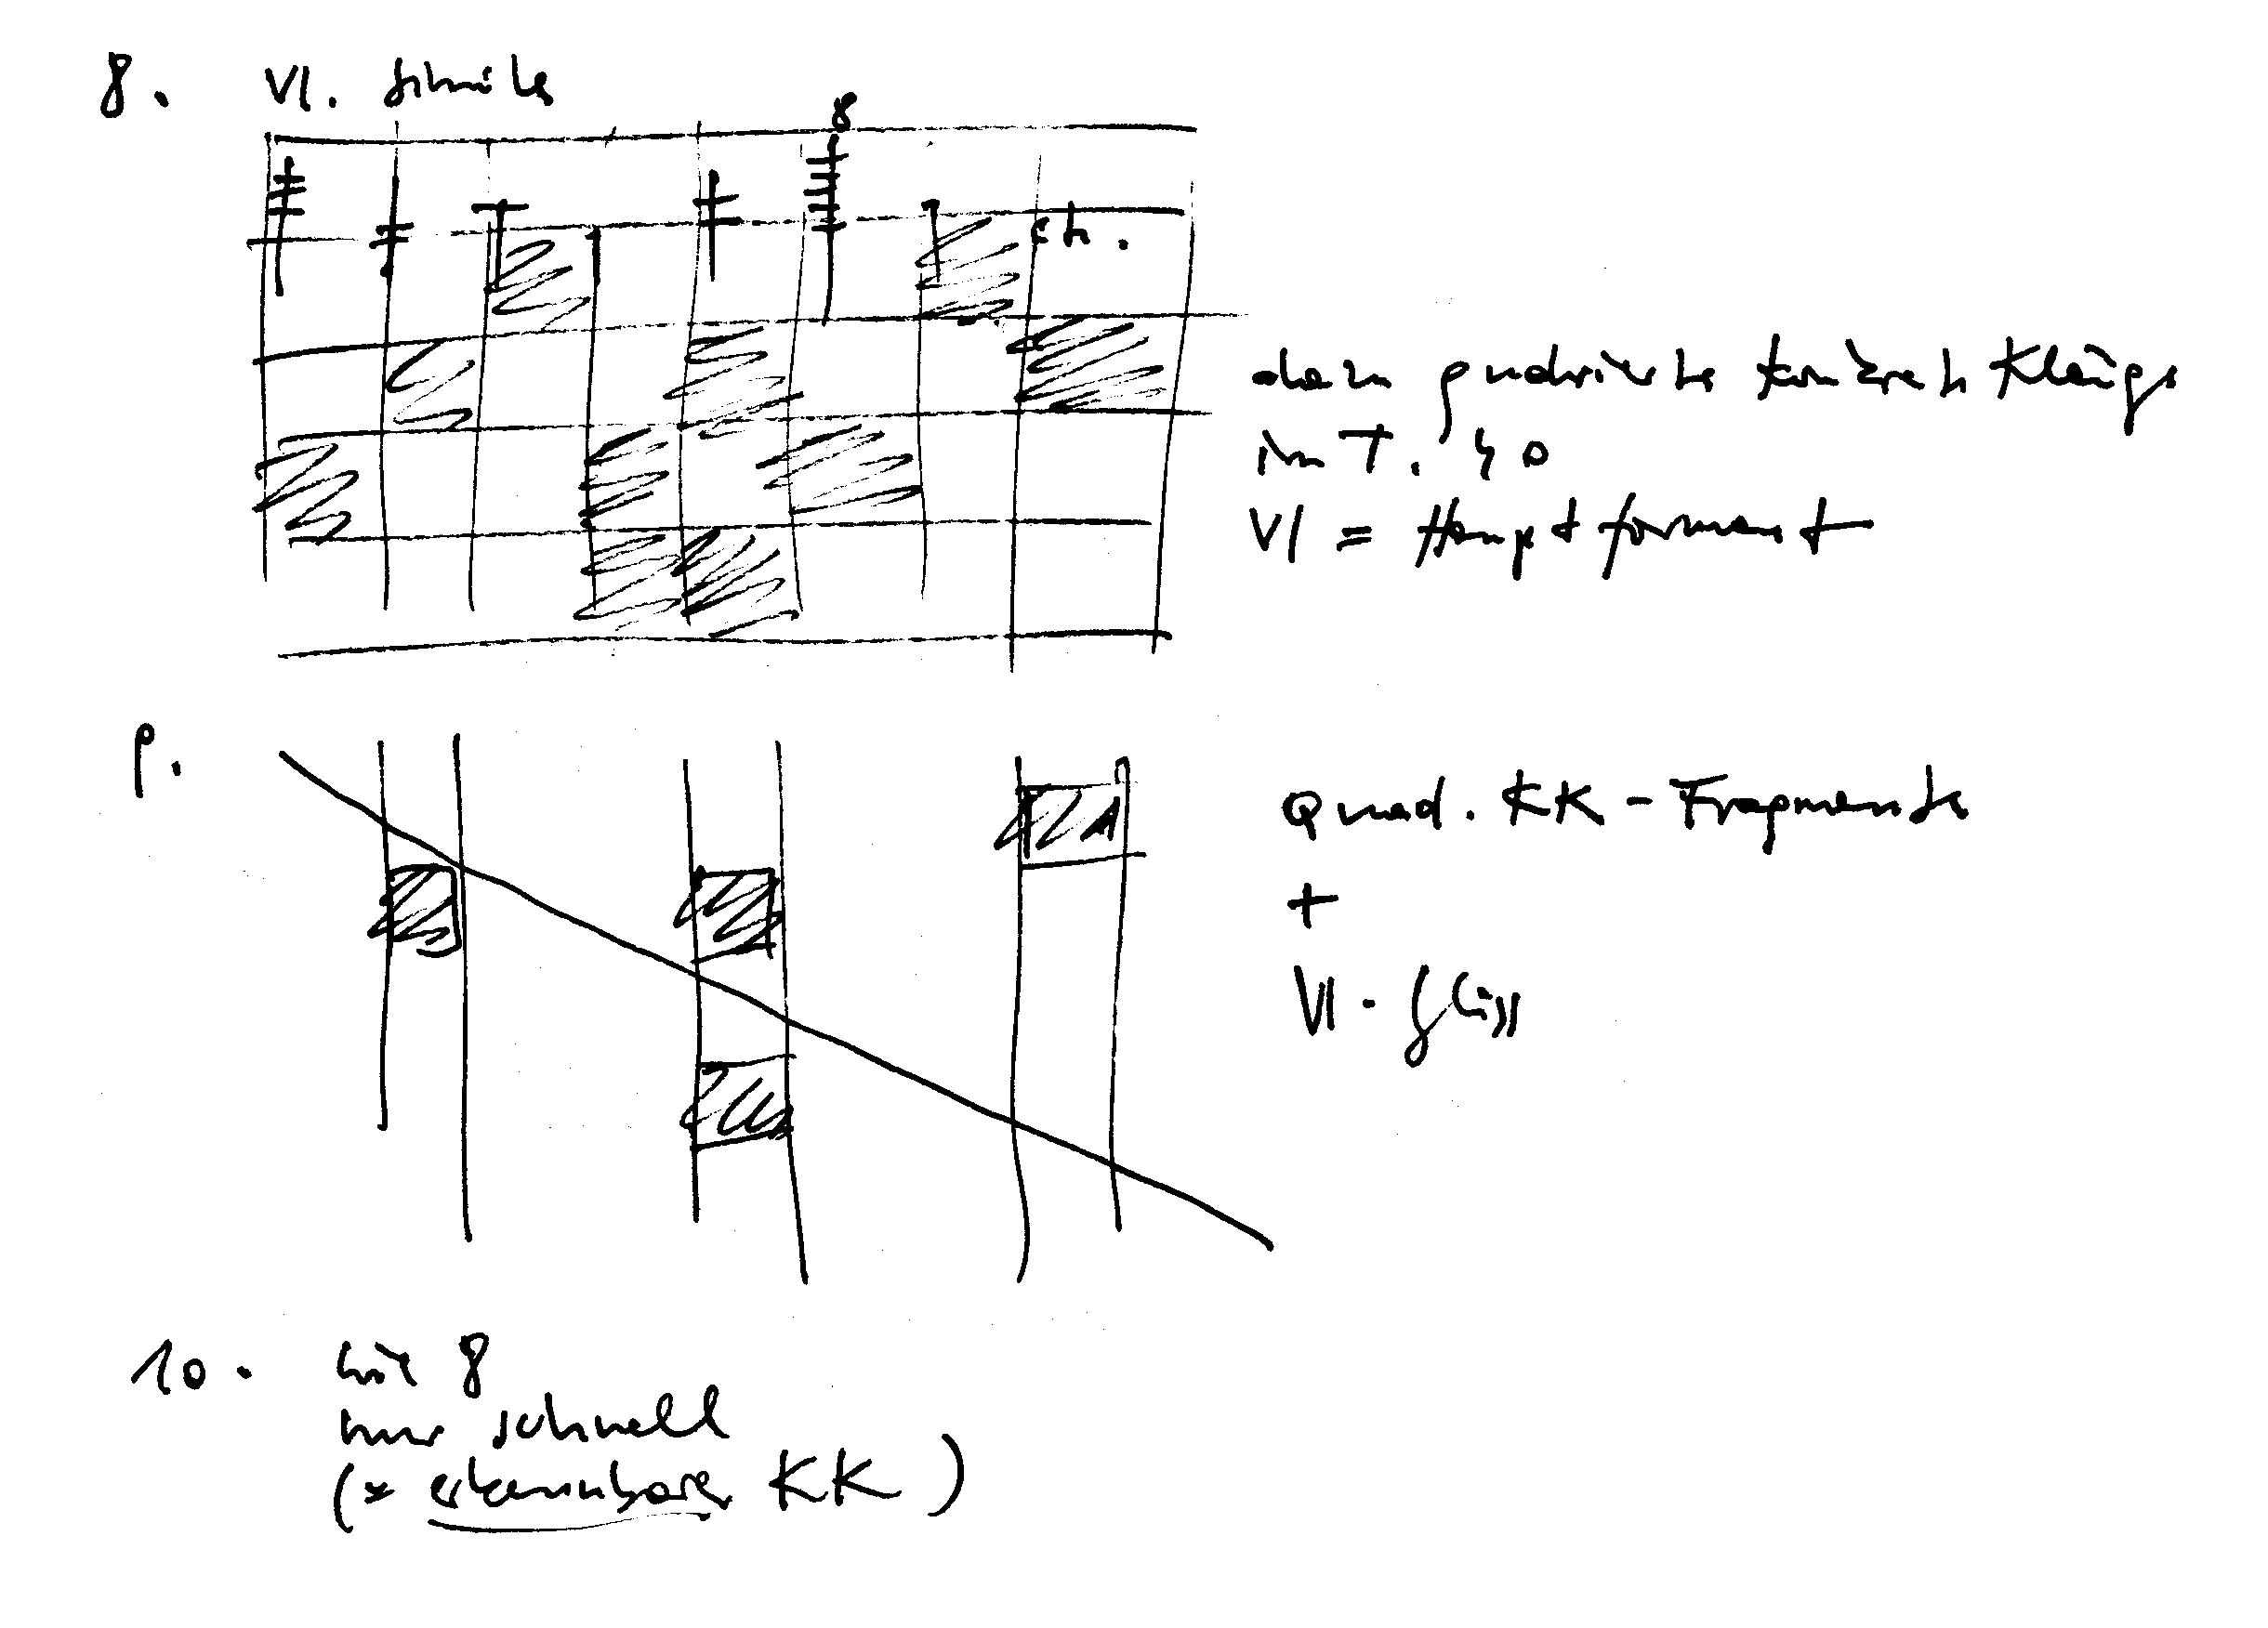 8. Vl. simile
8
etc.
dazu quadrierte konkrete Klänge
in T. 40
Vl = Hauptformant
9.
Quad. KK-Fragmente
+
Vl-gliss
10. wie 8
nur schnell
(* erkennbare KK)